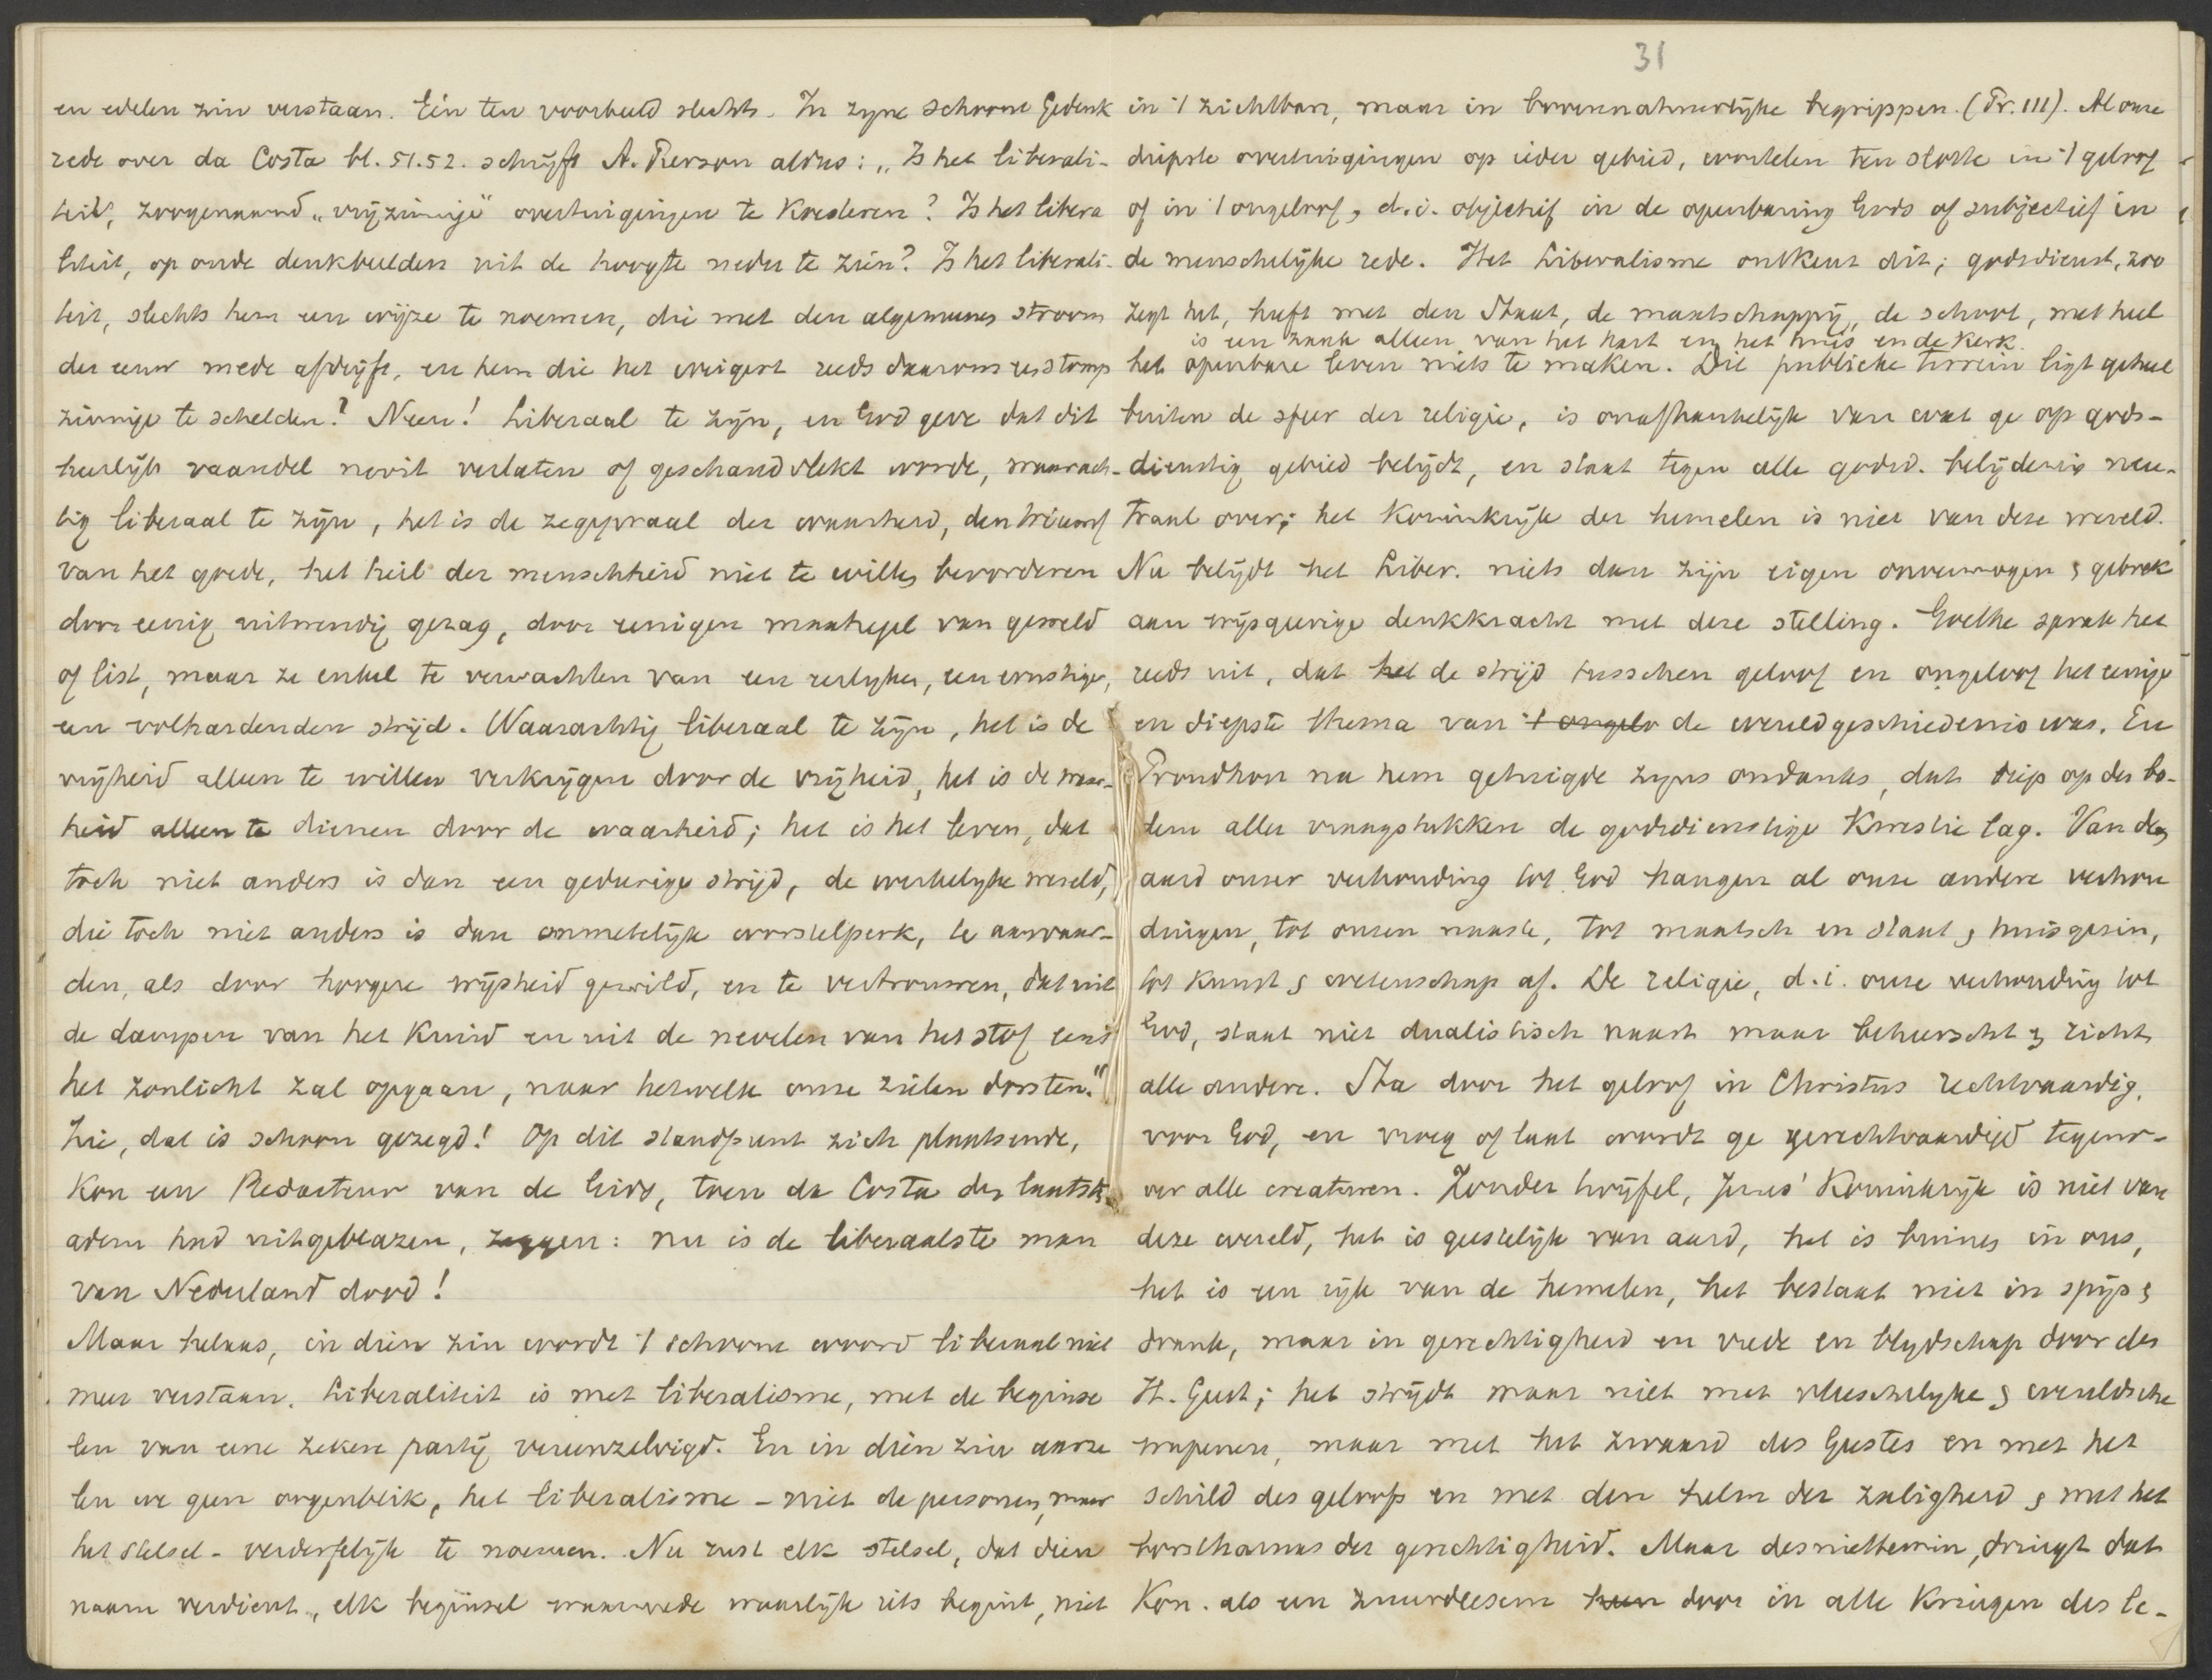 en edelen zin verstaan. Eén ten voorbeeld slechts. In zyne schoone Gedenk
rede over da Costa bl. 51.52. schrijft A. Pierson aldus: „Is het liberali-
teit, zoogenaamd „vrijzinnige" overtuigingen te koesteren? Is het libera
liteit, op oude denkbeelden uit de hoogte neder te zien? Is het liberali-
teit, slechts hem een wijze te noemen, die met den algemeenen stroom
der eeuw mede afdrijft, en hem die het weigert reeds daarom een stomp
zinnige te schelden? Neen! Liberaal te zijn, en God geve dat dit
heerlijk vaandel nooit verlaten of geschandvlekt worde, waarach-
tig liberaal te zijn, het is de zegepraal der waarheid, den triumf
van het goede, het heil der menschheid niet te willen bevorderen
door eenig uitwendig gezag, door eenigen maatregel van geweld
of list, maar ze enkel te verwachten van een eerlyken, een ernstigen,
een volhardenden strijd. Waarachtig liberaal te zijn, het is de
vrijheid alleen te willen verkrijgen door de vrijheid, het is de waar-
heid alleen te dienen door de waarheid; het is het leven, dat
toch niet anders is dan een gedurige strijd, de werkelyke wereld,
die toch niet anders is dan onmetelijk worstelperk, te aanvaar-
den, als door hoogere wijsheid gewild, en te vertrouwen, dat uit
de dampen van het kruid en uit de nevelen van het stof eens
het zonlicht zal opgaan, naar hetwelk onze zielen dorsten."
Zie, dat is schoon gezegd! Op dit standpunt zich plaatsende,
kon een Redacteur van de Gids, toen da Costa den laatsten
adem had uitgeblazen, zeggen: nu is de liberaalste man
van Nederland dood!
Maar helaas, in dien zin wordt 't schoone woord liberaal niet
meer verstaan. Liberaliteit is met liberalisme, met de beginse
len van eene zekere partij vereenzelvigd. En in dien zin aarze
len we geen oogenblik, het liberalisme - niet de personen, maar
het stelsel - verderfelijk te noemen. Nu rust elk stelsel, dat dien
naam verdient, elk beginsel waarmede waarlijk iets begint, niet
31
in 't zichtbare, maar in bovennatuurlijke begrippen. (Pr. III). Al onze
diepste overtuigingen op ieder gebied, wortelen ten slotte in 't geloof
of in 't ongeloof, d.i. objectief in de openbaring Gods of subjectief in
de menschelijke rede. Het Liberalisme ontkent dit; godsdienst, zoo
zegt het, heeft met den Staat, de maatschappij, de school, met heel
is een zaak alleen van het hart en het huis en de kerk.
het openbare leven niets te maken. Dit publieke terrein ligt geheel
buiten de sfeer der religie, is onafhankelijk van wat ge op gods-
dienstig gebied belijdt, en staat tegen alle godsd. belijdenis neu-
traal over; het Koninkrijk der hemelen is niet van deze wereld.
Nu belijdt het Liber. niets dan zijn eigen onvermogen & gebrek
aan wijsgeerige denkkracht met deze stelling. Goethe sprak het
reeds uit, dat het de strijd tusschen geloof en ongeloof het eenige
en diepste thema van 't ongelo de wereldgeschiedenis was. En
Proudhon na hem getuigde zyns ondanks, dat diep op den bo-
dem aller vraagstukken de godsdienstige kwestie lag. Van den
aard onzer verhouding tot God hangen al onze andere verhou
dingen, tot onzen naaste, tot maatsch en staat & huisgezin,
tot kunst & wetenschap af. De religie, d.i. onze verhouding tot
God, staat niet dualistisch naast maar beheerscht & richt
alle andere. Sta door het geloof in Christus rechtvaardig,
voor God, en vroeg of laat wordt ge gerechtvaardigd tegeno-
ver alle creaturen. Zonder twijfel, Jezus' Koninkrijk is niet van
deze wereld, het is geestelijk van aard, het is binnen in ons,
het is een rijk van de hemelen, het bestaat niet in spijs &
drank, maar in gerechtigheid en vrede en blydschap door den
H. Geest; het strijdt maar niet met vleeschelyke & wereldsche
wapenen, maar met het zwaard des Geestes en met het
schild des geloofs en met den helm der zaligheid & met het
borstharnas der gerechtigheid. Maar desniettemin, dringt dat
Kon. als een zuurdeesem door in alle kringen des le-